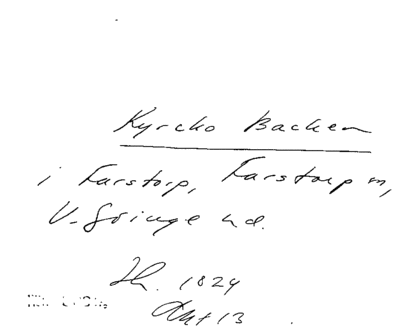 Kyrcko Backen
i Farstorp, Farstorp sn,
V. Göinge hd.
Ih. 1824
Akt 13